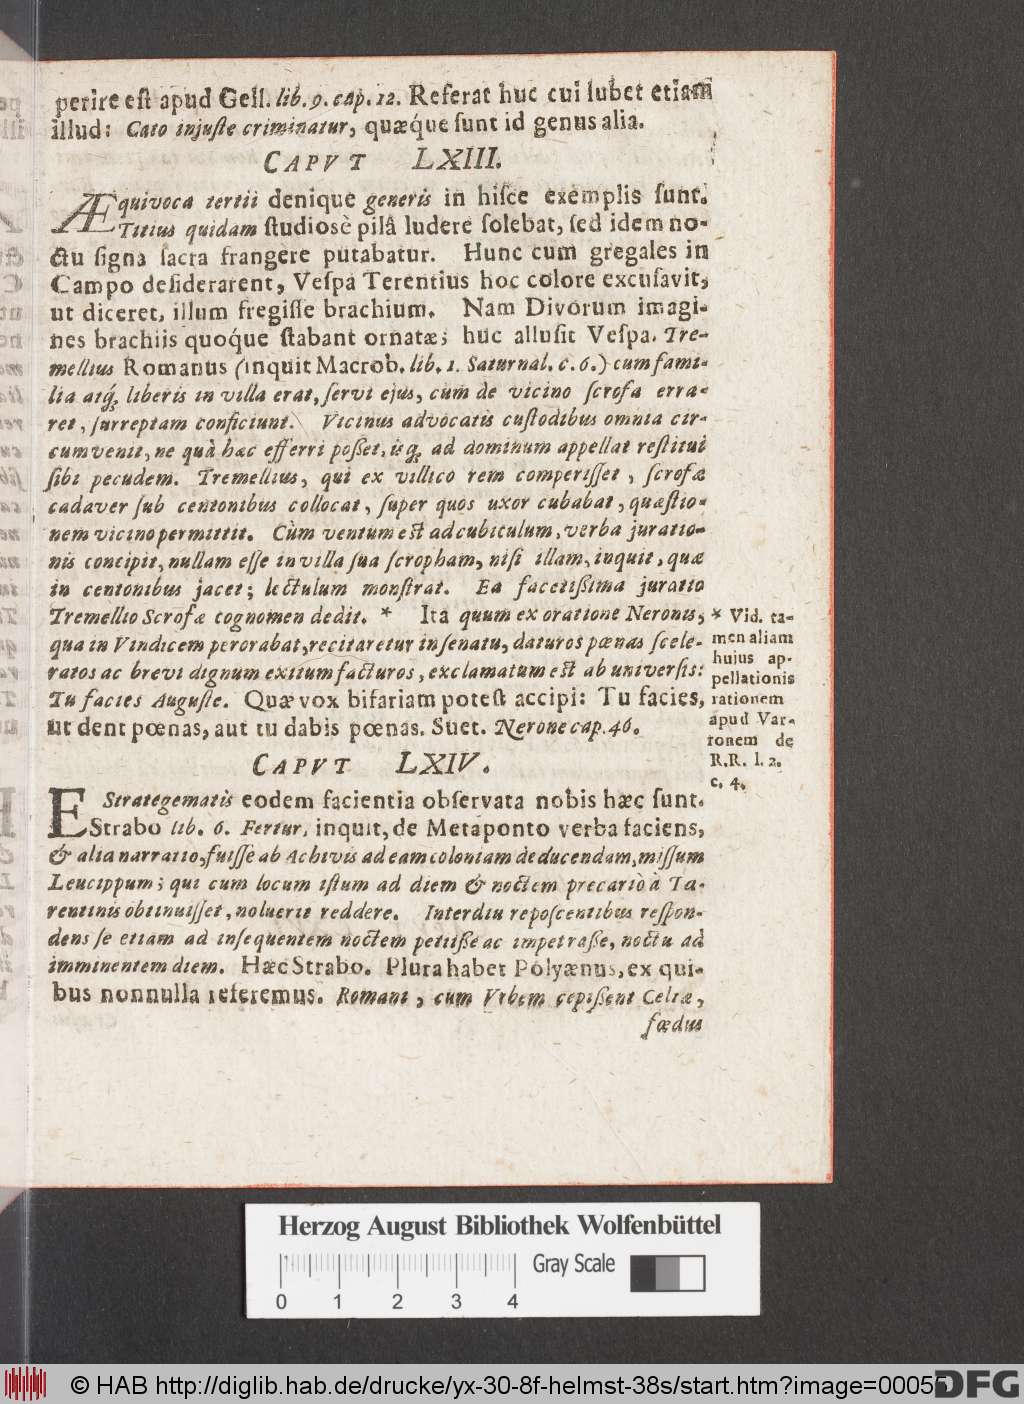 perire est apud Gell. lib. 9. cap. 12. Referat huc cui lubet etiam
illud: Cato injuste criminatur, quæq́ue sunt id genus alia.
CAPVT LXIII.
Æquivoca tertii denique generis in hisce exemplis sunt.
Titius quidam studiosè pilâ ludere solebat, sed idem no-
ctu signa sacra frangere putabatur. Hunc cum gregales in
Campo desiderarent, Vespa Terentius hoc colore excusavit,
ut diceret, illum fregisse brachium. Nam Divorum imagi-
nes brachiis quoq́ue stabant ornatæ; huc allusit Vespa. Tre-
mellius Romanus (inquit Macrob. lib. 1. Saturnal. c. 6.) cum fami-
lia atq; liberis in villa erat, servi ejus, cum de vicino scrofa erra-
ret, surreptam conficiunt. Vicinus advocatis custodibus omnia cir-
cumvenit, ne quà hæc efferri posset, isq; ad dominum appellat restitui
sibi pecudem. Tremellius, qui ex villico rem comperisset, scrofæ
cadaver sub centonibus collocat, super quos uxor cubabat, quæstio-
nem vicino permittit. Cùm ventum est ad cubiculum, verba juratio-
nis concipit, nullam esse in villa sua scropham, nisi illam, inquit, quæ
in centonibus jacet; lectulum monstrat. Ea facetissima juratio
Tremellio Scrofæ cognomen dedit. * Ita quum ex oratione Neronis,
qua in Vindicem perorabat, recitaretur in senatu, daturos pœnas scele-
ratos ac brevi dignum exitum facturos, exclamatum est ab universis:
Tu facies Auguste. Quæ vox bifariam potest accipi: Tu facies,
ut dent pœnas, aut tu dabis pœnas. Suet. Nerone cap. 46.
* Vid. ta-
men aliam
hujus ap-
pellationis
rationem
apud Var-
ronem de
R.R. l. 2.
c. 4.
CAPVT LXIV.
E Strategematis eodem facientia observata nobis hæc sunt.
Strabo lib. 6. Fertur, inquit, de Metaponto verba faciens,
& alia narratio, fuisse ab Achivis ad eam coloniam deducendam, missum
Leucippum; qui cum locum istum ad diem & noctem precariò à Ta-
rentinis obtinuisset, noluerit reddere. Interdiu reposcentibus respon-
dens se etiam ad insequentem noctem petiisse ac impetrasse, noctu ad
imminentem diem. Hæc Strabo. Plura habet Polyænus, ex qui-
bus nonnulla referemus. Romani, cum Vrbem cepissent Celtæ,
fœdus
Herzog August Bibliothek Wolfenbüttel
Gray Scale
0 1 2 3 4
© HAB http://diglib.hab.de/drucke/yx-30-8f-helmst-38s/start.htm?image=00055
DFG